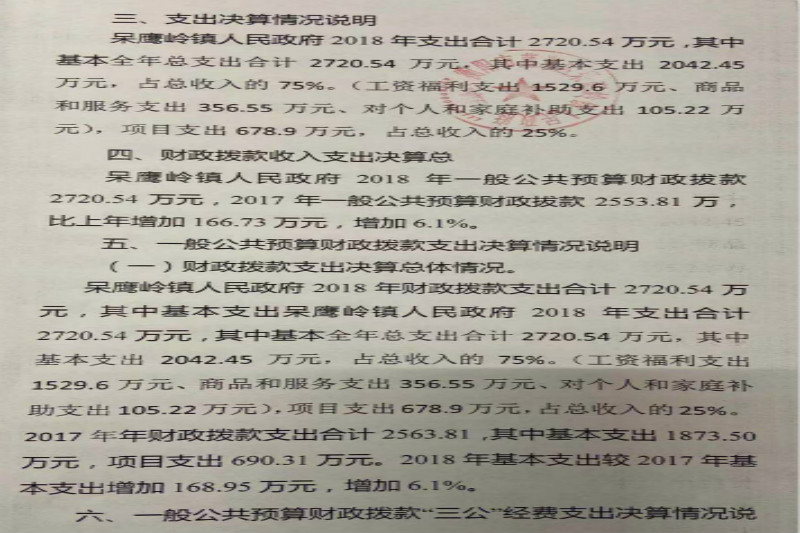 三、支出决算情况说明
呆鹰岭镇人民政府 2018 年支出合计 2720.54 万元，其中
基本全年总支出合计 2720.54 万元，其中基本支出 2042.45
万元，占总收入的 75%。（工资福利支出 1529.6 万元、商品
和服务支出 356.55 万元、对个人和家庭补助支出 105.22 万
元），项目支出 678.9 万元，占总收入的 25%。
四、财政拨款收入支出决算总
呆鹰岭镇人民政府 2018 年一般公共预算财政拨款
2720.54 万元，2017 年一般公共预算财政拨款 2553.81 万，
比上年增加 166.73 万元，增加 6.1%。
五、一般公共预算财政拨款支出决算情况说明
（一）财政拨款支出决算总体情况。
呆鹰岭镇人民政府 2018 年财政拨款支出合计 2720.54 万
元，其中基本支出呆鹰岭镇人民政府 2018 年支出合计
2720.54 万元，其中基本全年总支出合计 2720.54 万元，其中
基本支出 2042.45 万元，占总收入的 75%。（工资福利支出
1529.6 万元、商品和服务支出 356.55 万元、对个人和家庭补
助支出 105.22 万元），项目支出 678.9 万元，占总收入的 25%。
2017 年年财政拨款支出合计 2563.81 ,其中基本支出 1873.50
万元，项目支出 690.31 万元。2018 年基本支出较 2017 年基
本支出增加 168.95 万元，增加 6.1%。
六、一般公共预算财政拨款“三公”经费支出决算情况说